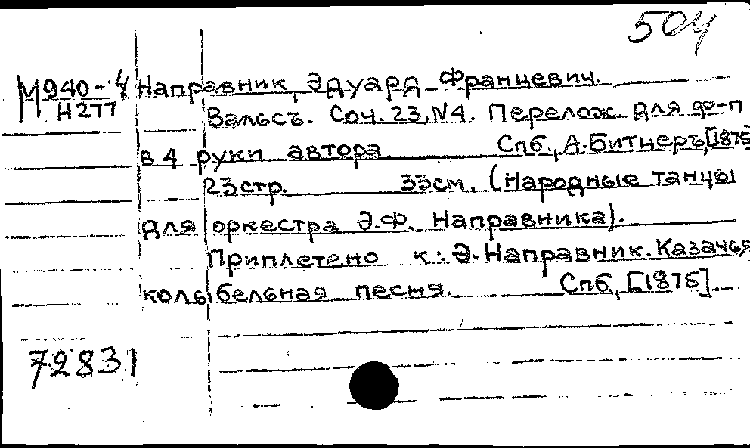 504
М940-4 Направник, Эдуард Францевич.
Н277
Вальсъ. Соч. 23, N4. Перелож. для ф-п
в 4 руки автора Спб., А. Битнеръ, [1875]
23стр. 33см. (Народные танцы
для оркестра Э.Ф. Направника).
Приплетено к: Э. Направник. Казачья
колыбельная песня. Спб, [1875].
72831